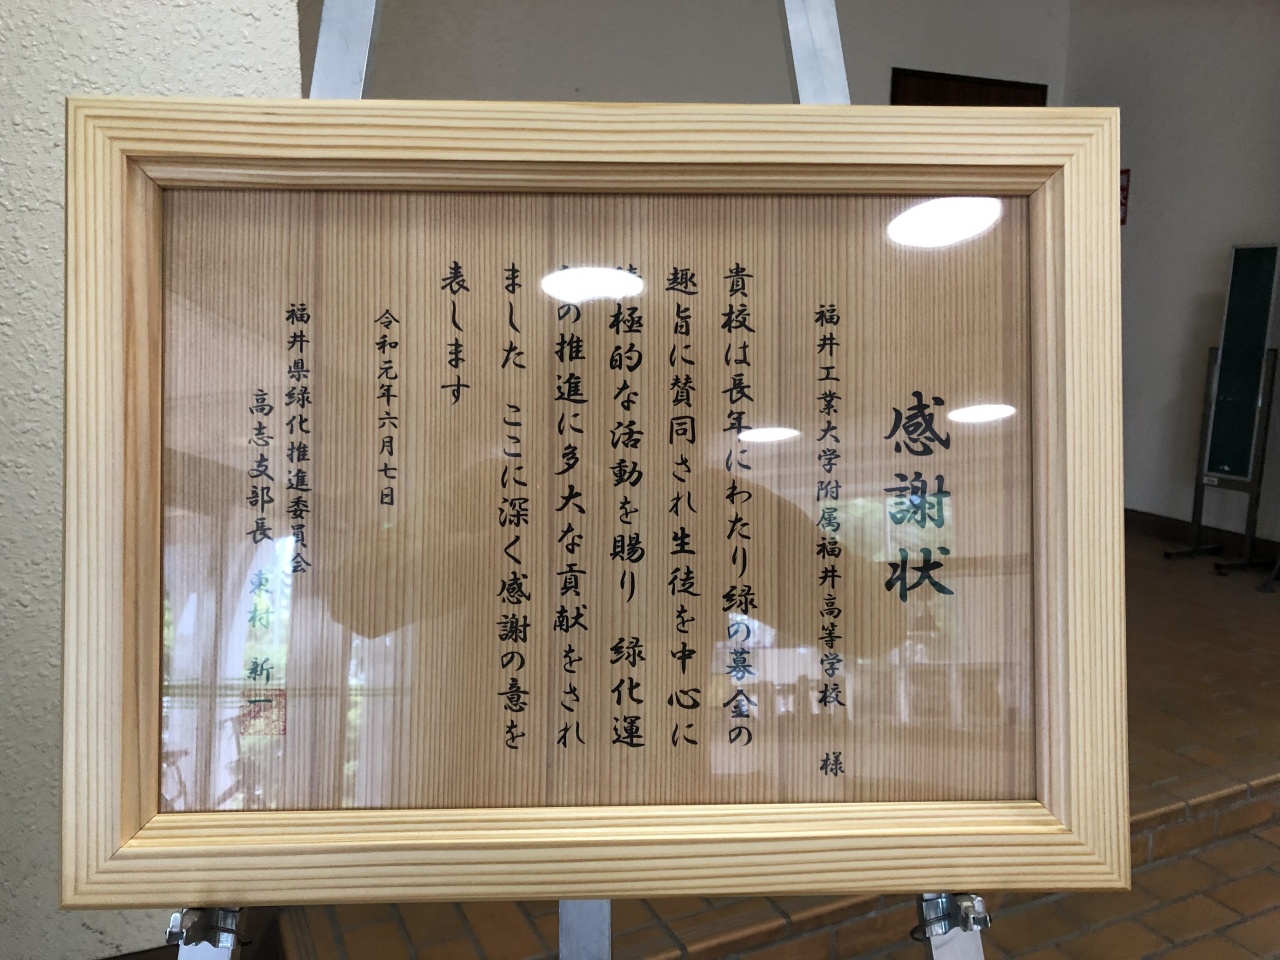 感謝状
福井工業大学附属福井高等学校 様
貴校は長年にわたり緑の募金の
趣旨に賛同され生徒を中心に
極的な活動を賜り 緑化運
の推進に多大な貢献をされ
ました ここに深く感謝の意を
表します
令和元年六月七日
福井県緑化推進委員会
高志支部長 東村 新一